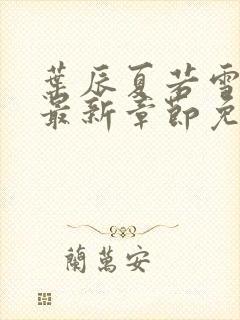 葉辰夏若雪
最新章節免
蘭萬安